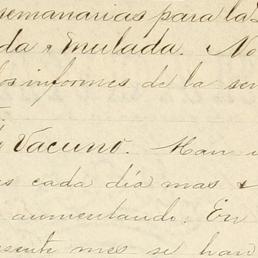 semanarias para la
da y Enulada. No
los informes de la sem
Vacuno. Han
cada día mas
aumentando. En
sente mes se han